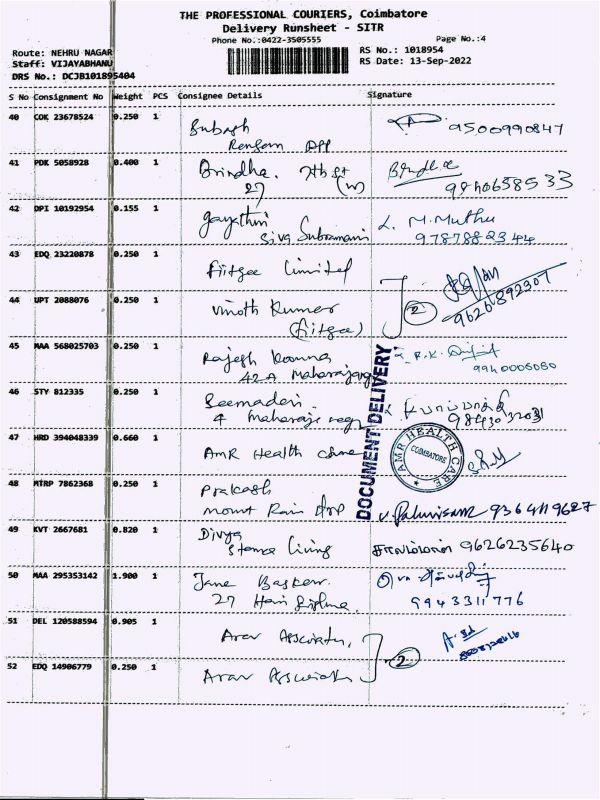 THE PROFESSIONAL COURIERS, Coimbatore
Delivery Runsheet - SITR
Phone No.:0422-3505555
Page No.:4
Route: NEHRU NAGAR
Staff: VIJAYABHANU
DRS No.: DCJB101895404
RS No.: 1018954
RS Date: 13-Sep-2022
S No Consignment No Weight PCS Consignee Details Signature
40 COK 23678524 0.250 1 Subash
9500990847
41 PDK 5058928 0.400 1 Brindha. 7th st
27 (w)
9840658533
42 DPI 10192954 0.155 1 gayathri L. M. Muthu
Siva Subramani 9787882344
43 EDQ 23220878 0.250 1 Fiitgee Limited
44 UPT 2088076 0.250 1 Vinoth Kumar 2 9626892307
(fiitgee)
45 MAA 568025703 0.250 1 Rajesh R.K.
42A Maharaja 9940006080
46 STY 812335 0.250 1 Seemadevi
4 Maharaja nagar
47 HRD 394048339 0.660 1 AMR Health care
AMR HEALTH CARE
COIMBATORE
DOCUMENT DELIVERY
48 MTRP 7862368 0.250 1 Prakash
Mount Rain App 9364119627
49 KVT 2667681 0.820 1 Divya
Stance living 9626235640
50 MAA 295353142 1.900 1 Jane Basker
27 Hari 9943311776
51 DEL 120588594 0.905 1 Arav Associates,
52 EDQ 14906779 0.250 1 Arav Associates 2